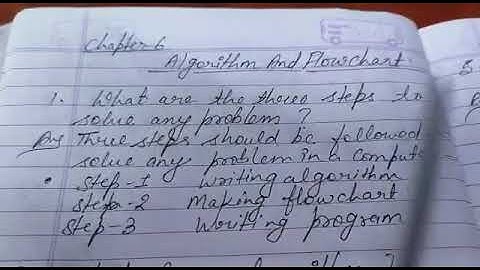 Chapter-6
Algorithm And Flowchart
1. What are the three steps to
solve any problem ?
Ans Three steps should be followed
solve any problem in a comput
• Step-1 Writing algorithm
Step-2 Making flowchart
Step-3 Writting program